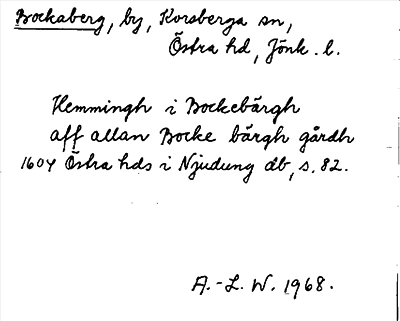 Bockaberg, by, Korsberga sn,
Östra hd, Jönk. l.
Hemmingh i Bockebärgh
aff allan Bocke bärgh gårdh
1604 Östra hds i Njudung db, s. 82.
A.-L. W. 1968.